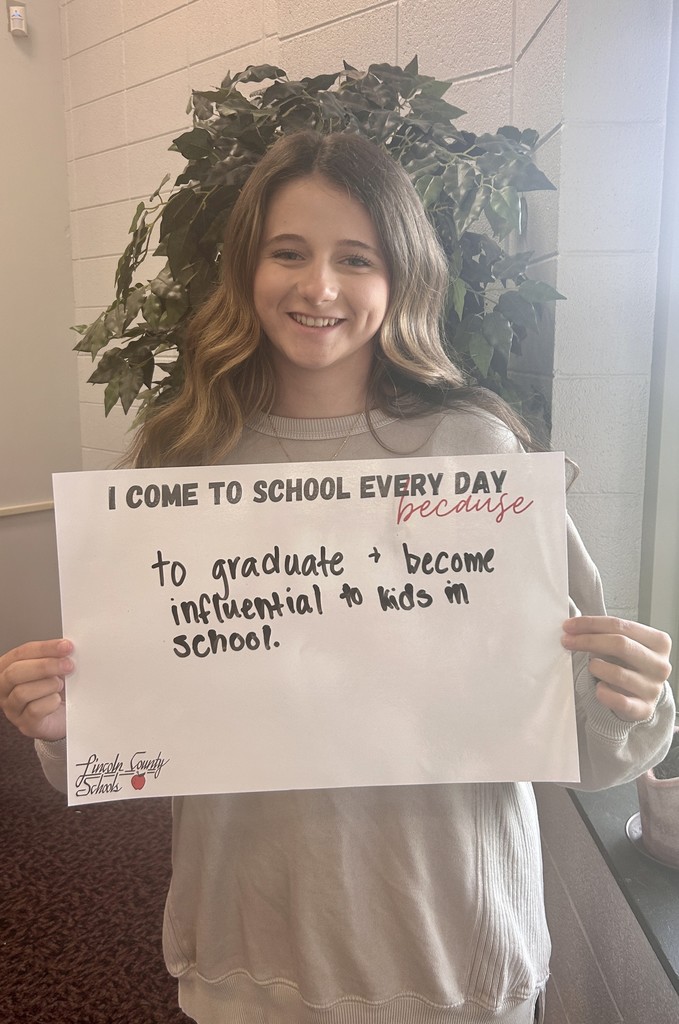 I COME TO SCHOOL EVERY DAY
because
to graduate + become
influential to kids in
school.
Lincoln County
Schools